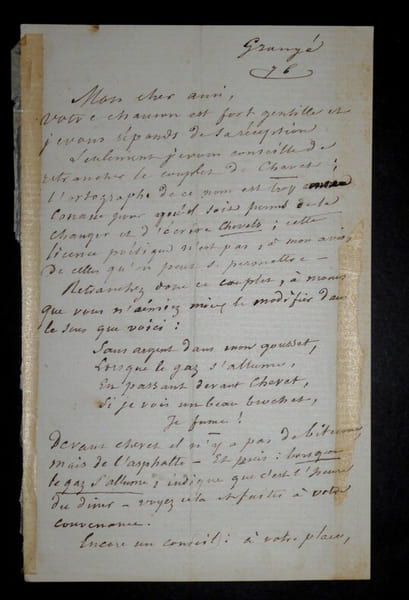 Grangé
76
Mon cher ami,
votre chanson est fort gentille et
je vous réponds de sa réception
Seulement je vous conseille de
retrancher le couplet de Chevet ;
l'ortographe de ce nom est trop
connue pour qu'il soit permis de la
changer et d'écrire Chevets ; cette
licence poétique n'est pas, à mon avis,
de celles qu'on peut se permettre –
Retranchez donc ce couplet, à moins
que vous n'aimiez mieux le modifier dans
le sens que voici :
Sans argent dans mon gousset,
Lorsque le gaz s'allume,
En passant devant Chevet,
Si je vois un beau brochet,
Je fume !
Devant chevet il n'y a pas de bitume,
mais de l'asphalte – Et puis : lorsque
le gaz s'allume, indique que c'est l'heure
du diner – voyez cela et à votre
convenance.
Encore un conseil : à votre place,